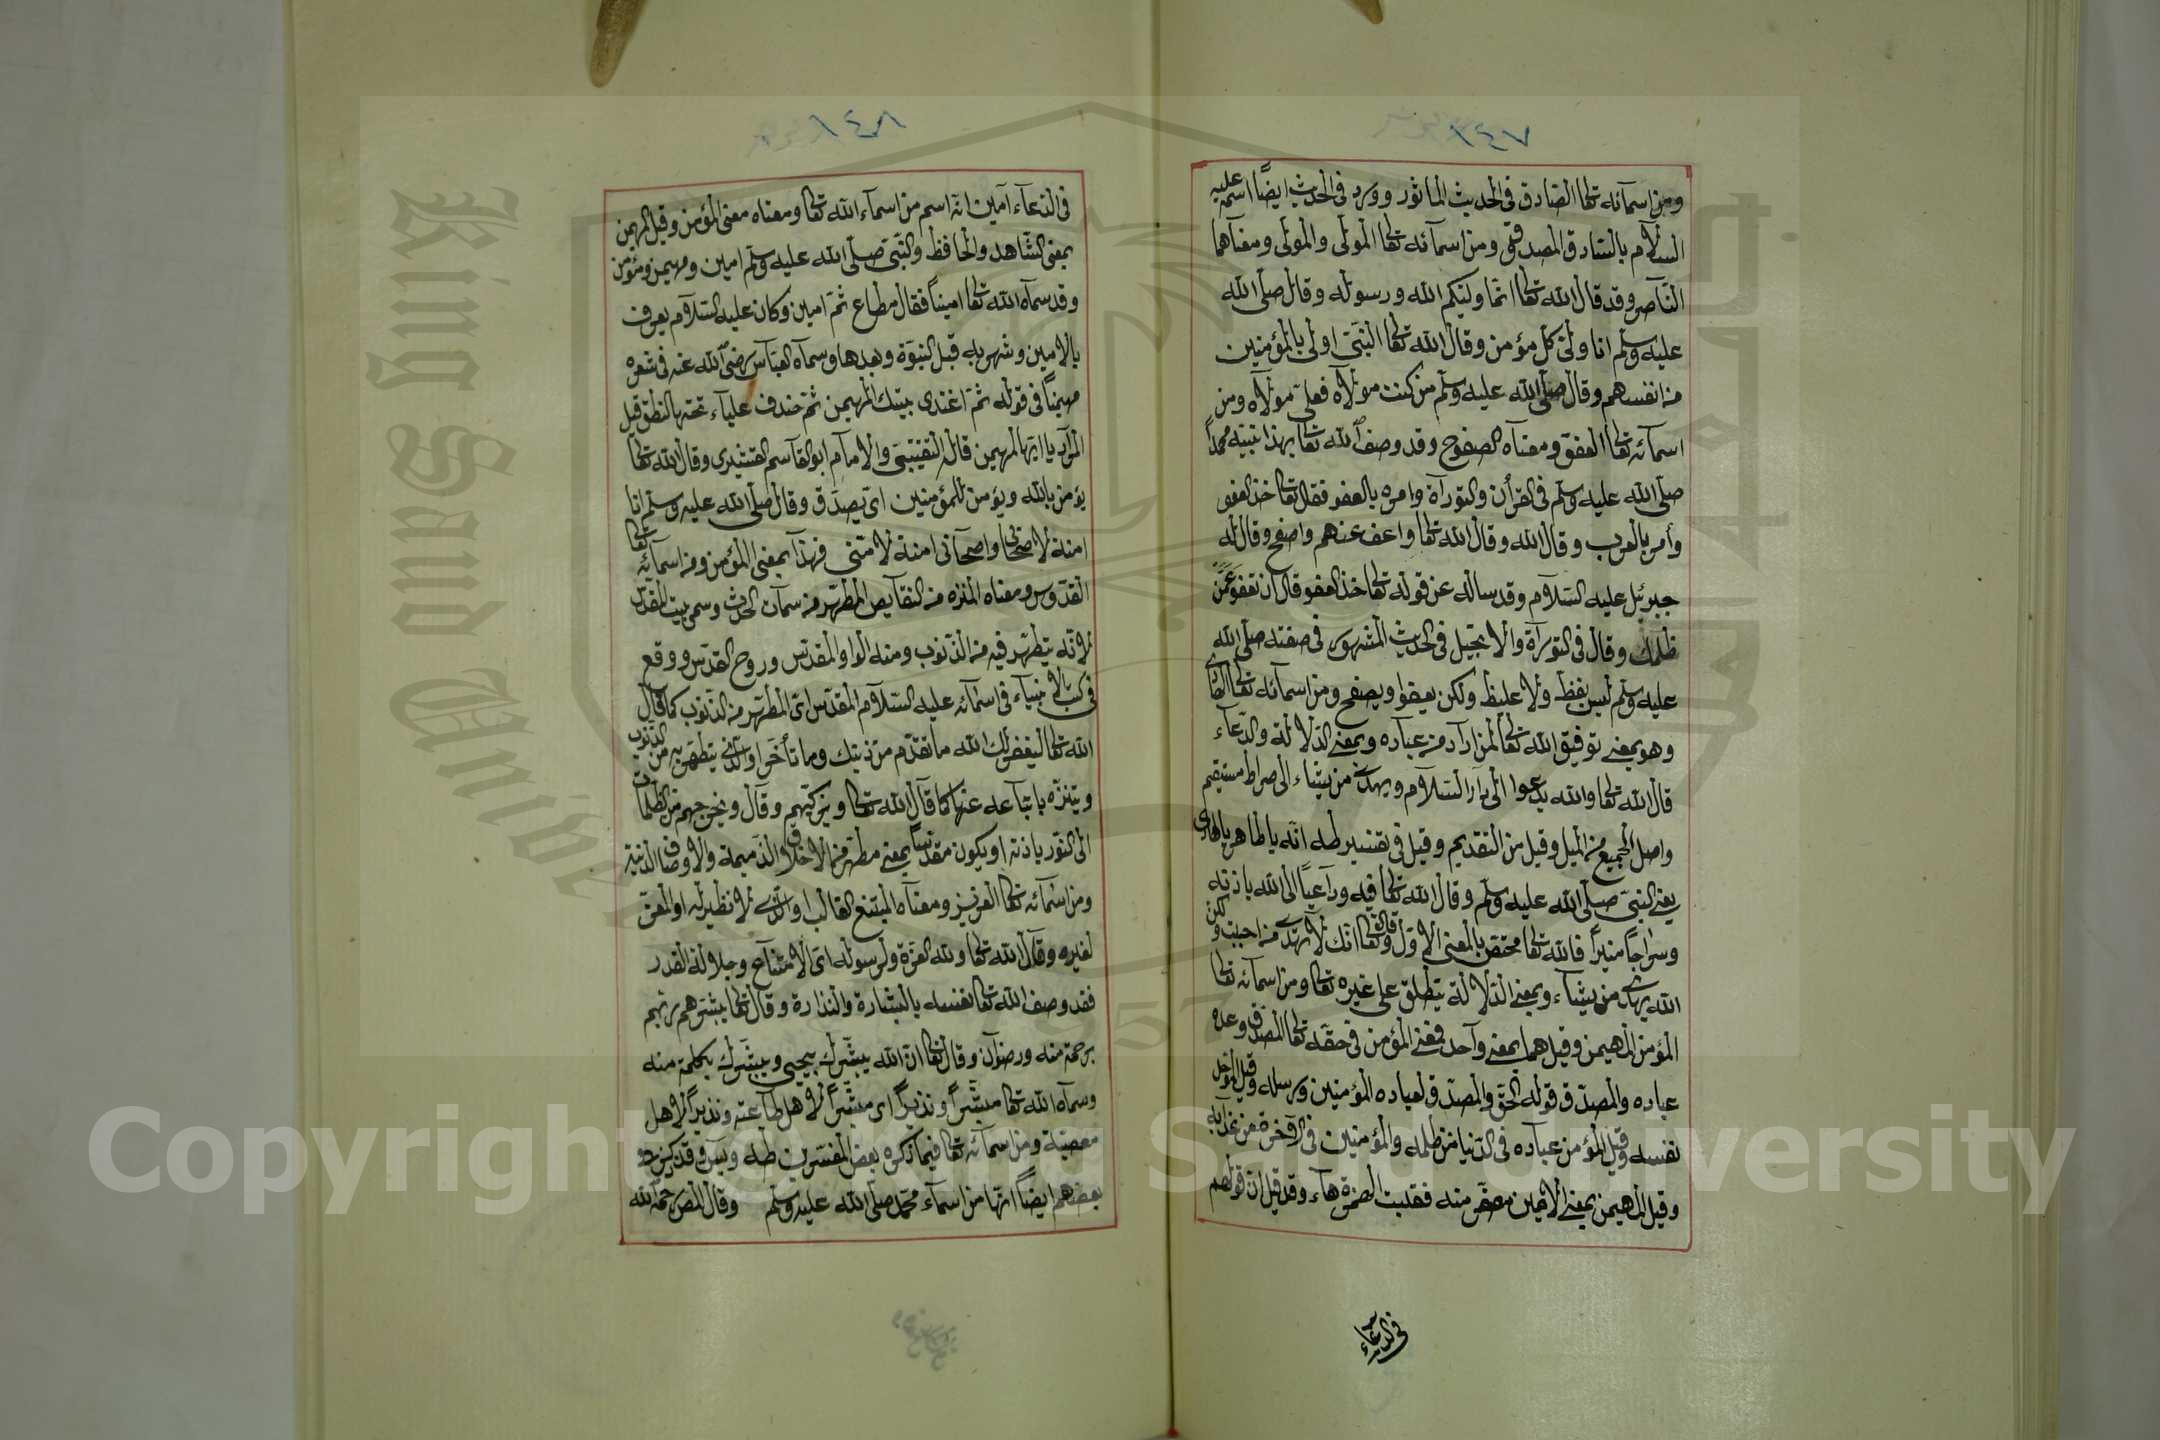 ١٤٧
ومن اسمائه تعالى الصادق فى الحديث الماثور وورد فى الحديث ايضًا اسمه عليه
السلام بالصادق المصدوق ومن اسمائه تعالى الولى والمولى ومعناهما
الناصر وقد قال الله تعالى انما وليكم الله ورسوله وقال صلى الله
عليه وسلم انا ولى كل مؤمن وقال الله تعالى النبى اولى بالمؤمنين
من انفسهم وقال صلى الله عليه وسلم من كنت مولاه فعلى مولاه ومن
اسمائه تعالى العفو ومعناه الصفوح وقد وصف الله تعالى بهذا نبيه محمداً
صلى الله عليه وسلم فى القرأن والتوراة وامره بالعفو فقال تعالى خذ العفو
وأمر بالعرف وقال الله وقال الله تعالى واعف عنهم واصفح وقال له
جبرئيل عليه السلام وقد ساله عن قوله تعالى خذ العفو قال ان تعفو عمن
ظلمك وقال فى التوراة والانجيل فى الحديث المشهور فى صفته صلى الله
عليه وسلم ليس بفظ ولا غليظ ولكن يعفوا ويصفح ومن اسمائه تعالى الهادى
وهو بمعنى توفيق الله تعالى لمن اراد من عباده وبمعنى الدلالة والدعآء
قال الله تعالى والله يدعوا الى دار السلام ويهدى من يشاء الى صراط مستقيم
واصل الجميع من الميل وقيل من التقديم وقيل فى تفسير طه انه يا طاهر يا هادى
يعنى النبى صلى الله عليه وسلم وقال الله تعالى فيه وداعيًا الى الله باذنه
وسراجًا منيرًا فالله تعالى مختص بالمعنى الاول وقال تعالى انك لا تهدى من احببت ولكن
الله يهدى من يشآء وبمعنى الدلالة يتطلق على غيره تعالى ومن اسمائه تعالى
المؤمن المهيمن وقيل هما بمعنى وآحد فمعنى المؤمن فى حقه تعالى المصدق وعده
عباده والمصدق قوله الحق والمصدق لعباده المؤمنين ورسله وقيل الموحد
نفسه وقيل المؤمن عباده فى الدنيا من ظلمه والمؤمنين فى الآخرة من عذابه
وقيل المهيمن بمعنى الامين مصغر منه فقلبت الهمزة هآء وقد قيل ان قولهم
فى الدعآء
١٤٨
فى الدعآء آمين انه اسم من اسمآء الله تعالى ومعناه معنى المؤمن وقيل المهيمن
بمعنى الشاهد والحافظ والنبى صلى الله عليه وسلم امين ومهيمن ومؤمن
وقد سماه الله تعالى امينًا فقال مطاع ثم امين وكان عليه السلام يعرف
بالامين وشهر به قبل النبوة وبعدها وسماه العباس رضى الله عنه فى شعره
مهيمنًا فى قوله ثم اغتدى بيتك المهيمن ثم خندف علياء تحتها النطق قيل
المراد يا ايها المهيمن قاله القتيبى والامام ابو القاسم القشيرى وقال الله تعالى
يؤمن بالله ويؤمن للمؤمنين اى يصدق وقال صلى الله عليه وسلم انا
امنة لاصحابى واصحابى امنة لامتى فهذا بمعنى المؤمن ومن اسمائه تعالى
القدوس ومعناه المنزه من النقايص المطهر من سمات الحدث وسمى بيت المقدس
لانه يتطهر فيه من الذنوب ومنه الواد المقدس وروح القدس ووقع
فى كتب الانبياء فى اسمائه عليه السلام المقدس اى المطهر من الذنوب كما قال
الله تعالى ليغفر لك الله ما تقدم من ذنبك وما تأخر او الذى يتطهر به من الذنوب
ويتنزه باتباعه عنها كما قال الله تعالى ويزكيهم وقال ويخرجهم من الظلمات
الى النور باذنه او يكون مقدسًا بمعنى مطهر من الاخلاق الذميمة والاوصاف الدنية
ومن اسمائه تعالى العزيز ومعناه الممتنع الغالب او الذى لا نظير له او المعز
لغيره وقال الله تعالى ولله العزة ولرسوله اى الامتناع وجلالة القدر
فقد وصف الله تعالى نفسه بالبشارة والنذارة وقال تعالى يبشرهم ربهم
برحمة منه ورضوان وقال تعالى ان الله يبشرك بيحيى ويبشرك بكلمة منه
وسماه الله تعالى مبشرًا ونذيرًا اى مبشرًا لاهل طاعته ونذيرًا لاهل
معصيته ومن اسمائه تعالى فيما ذكره بعض المفسرين طه ويس وقد ذكر
بعضهم ايضًا انها من اسمآء محمد صلى الله عليه وسلم وقال المص رحمه الله
King Saud University
1957
Copyright © King Saud University